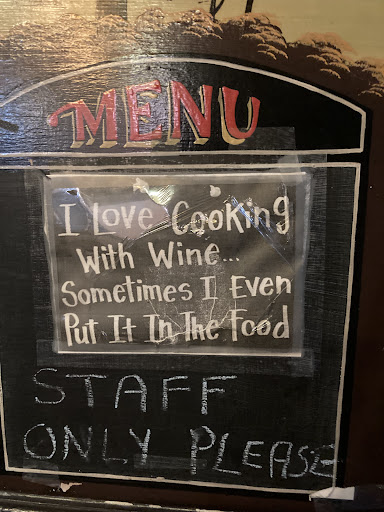 MENU
I Love Cooking
With Wine...
Sometimes I Even
Put It In The Food
STAFF
ONLY PLEASE